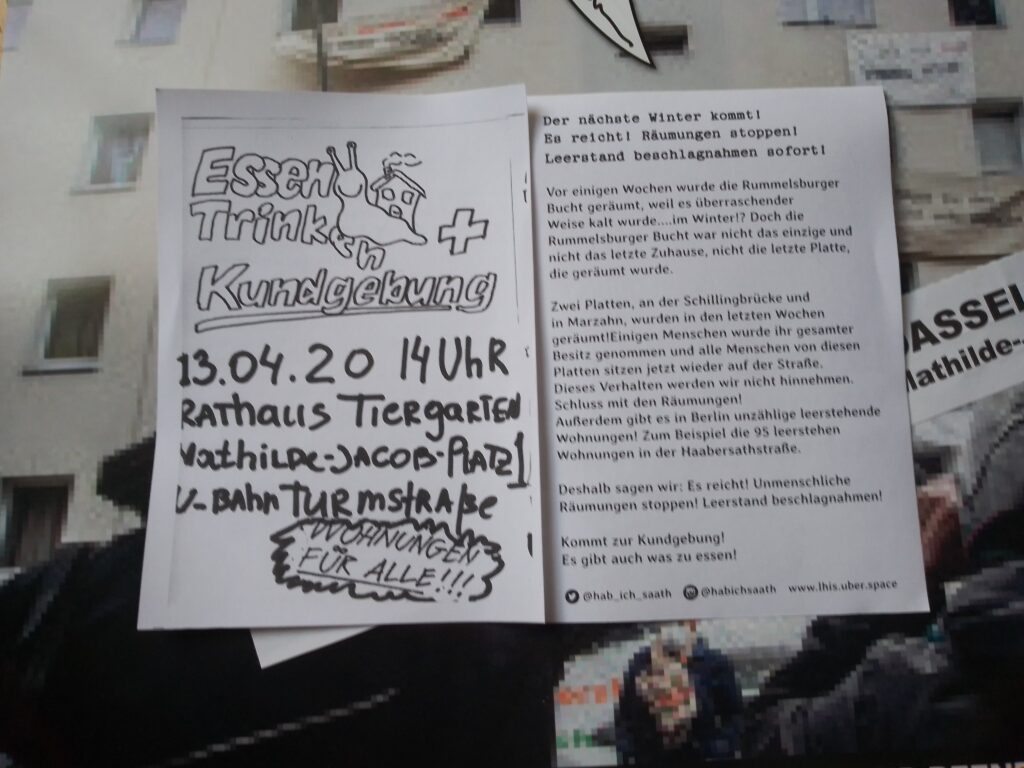 Essen
Trinken +
Kundgebung
13.04.20 14 UhR
RAthaus TiergartEN
Mathilde-JACOB-PlATZ 1
U-BAhn TURmstraße
WOHNUNGEN
FÜR ALLE!!!
Der nächste Winter kommt!
Es reicht! Räumungen stoppen!
Leerstand beschlagnahmen sofort!
Vor einigen Wochen wurde die Rummelsburger
Bucht geräumt, weil es überraschender
Weise kalt wurde....im Winter!? Doch die
Rummelsburger Bucht war nicht das einzige und
nicht das letzte Zuhause, nicht die letzte Platte,
die geräumt wurde.
Zwei Platten, an der Schillingbrücke und
in Marzahn, wurden in den letzten Wochen
geräumt!Einigen Menschen wurde ihr gesamter
Besitz genommen und alle Menschen von diesen
Platten sitzen jetzt wieder auf der Straße.
Dieses Verhalten werden wir nicht hinnehmen.
Schluss mit den Räumungen!
Außerdem gibt es in Berlin unzählige leerstehende
Wohnungen! Zum Beispiel die 95 leerstehen
Wohnungen in der Haabersathstraße.
Deshalb sagen wir: Es reicht! Unmenschliche
Räumungen stoppen! Leerstand beschlagnahmen!
Kommt zur Kundgebung!
Es gibt auch was zu essen!
@hab_ich_saath @habichsaath www.lhis.uber.space
DASSEL
Mathilde-